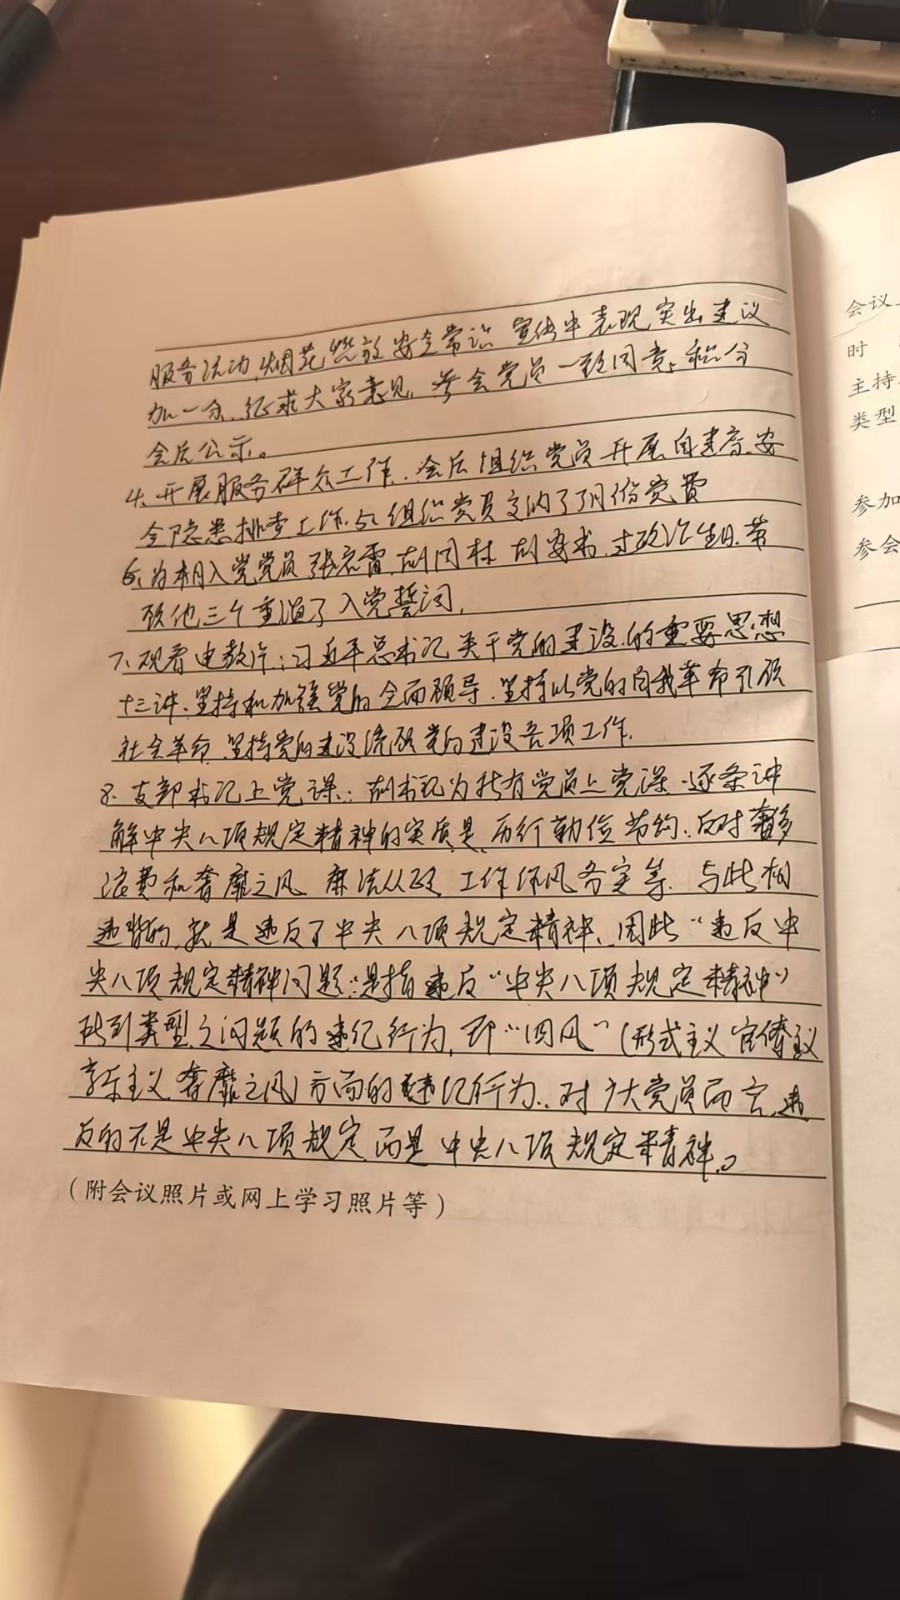 服务活动,烟花燃放安全常识 宣传中表现突出建议
加一分、征求大家意见,参会党员一致同意,积分
会后公示。
4、开展服务群众工作、会后组织党员开展自建房、安
全隐患排查工作. 5、组织党员交纳了3月份党费
6、为本月入党党员张 雷、胡同林 胡安书、过政治生日、带
领他三个重温了入党誓词,
7、观看电教片:习近平总书记关于党的建设的重要思想
十三讲、坚持和加强党的全面领导、坚持以党的自我革命引领
社会革命、坚持党的建设统领党的建设各项工作.
8、支部书记上党课:胡书记为所有党员上党课、逐条讲
解中央八项规定精神的实质是 厉行勤俭节约、反对奢侈
浪费和奢靡之风 廉洁从政 工作作风务实等、与此相
违背的,就是违反了中央八项规定精神、因此“违反中
央八项规定精神问题”是指违反“中央八项规定精神”
所列类型之问题的违纪行为,即“四风”(形式主义 官僚主义
享乐主义 奢靡之风)方面的违纪行为、对广大党员而言,违
反的不是中央八项规定,而是中央八项规定精神。
(附会议照片或网上学习照片等)
会议
时
主持
类型
参加
参会